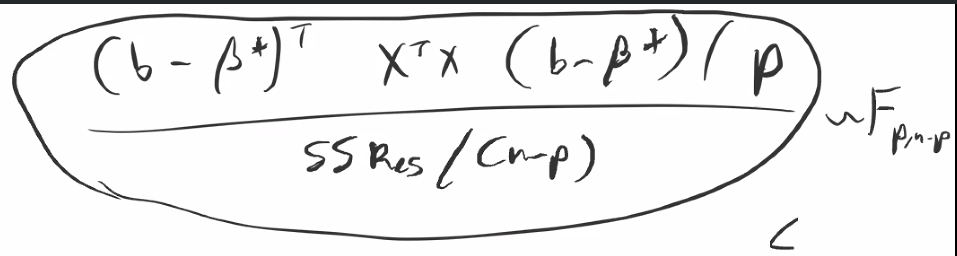 (b - β*)ᵀ XᵀX (b-β*) / p
SSRes / (n-p)
~F p,n-p